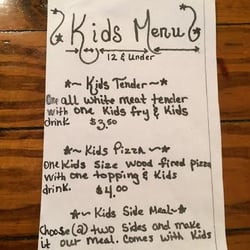 Kids Menu
12 & Under
*~ Kids Tender ~*
One all white meat tender
with one Kids fry & Kids
drink. $3.50
*~ Kids Pizza ~*
One Kids size wood fired pizza
with one topping & Kids
drink. $4.00
*~ Kids Side Meal ~*
Choose (2) two sides and make
it our meal. Comes with Kids